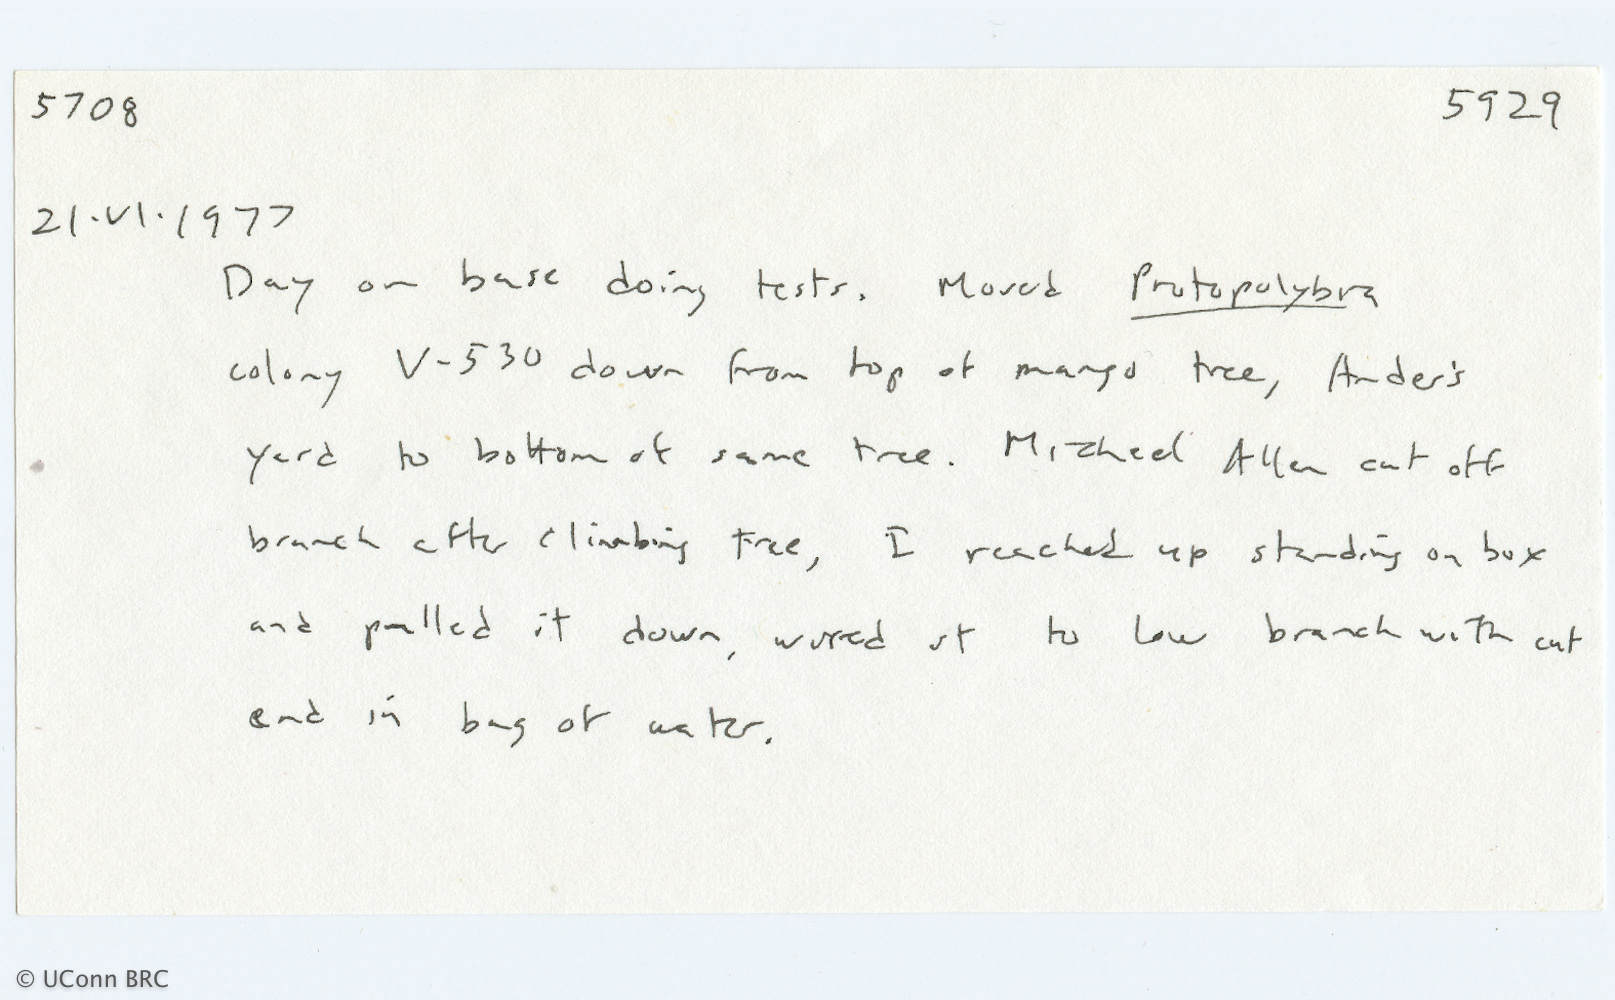 5708 5929
21.VI.1977
Day on base doing tests. Moved Protopolybia
colony V-530 down from top of mango tree, Ander's
yard to bottom of same tree. Michael Allen cut off
branch after climbing tree, I reached up standing on box
and pulled it down, wired it to low branch with cut
end in bag of water.
© UConn BRC